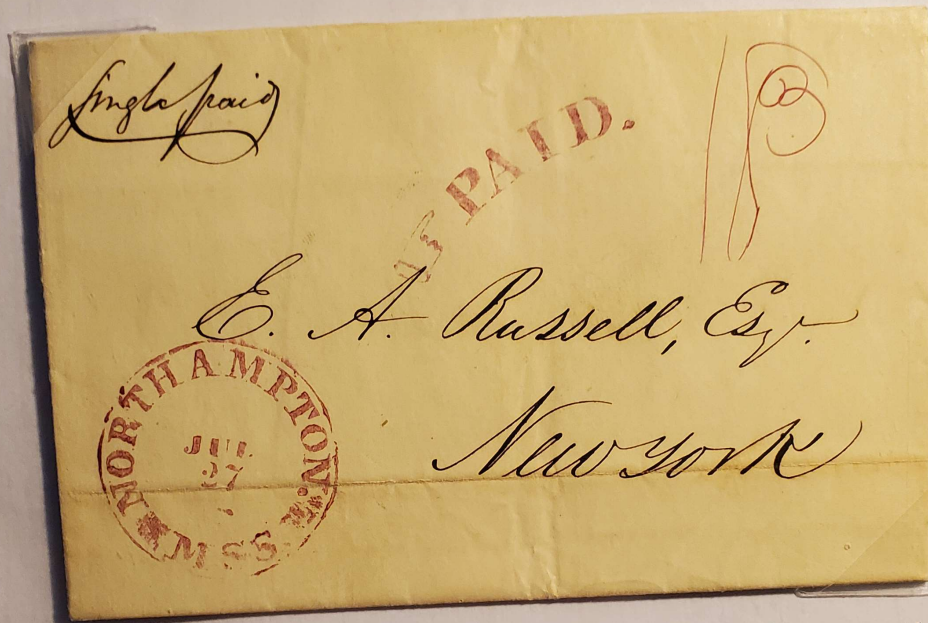 Single paid
PAID.
E. A. Russell, Esqr.
New York
NORTHAMPTON. MSS
JUL
27